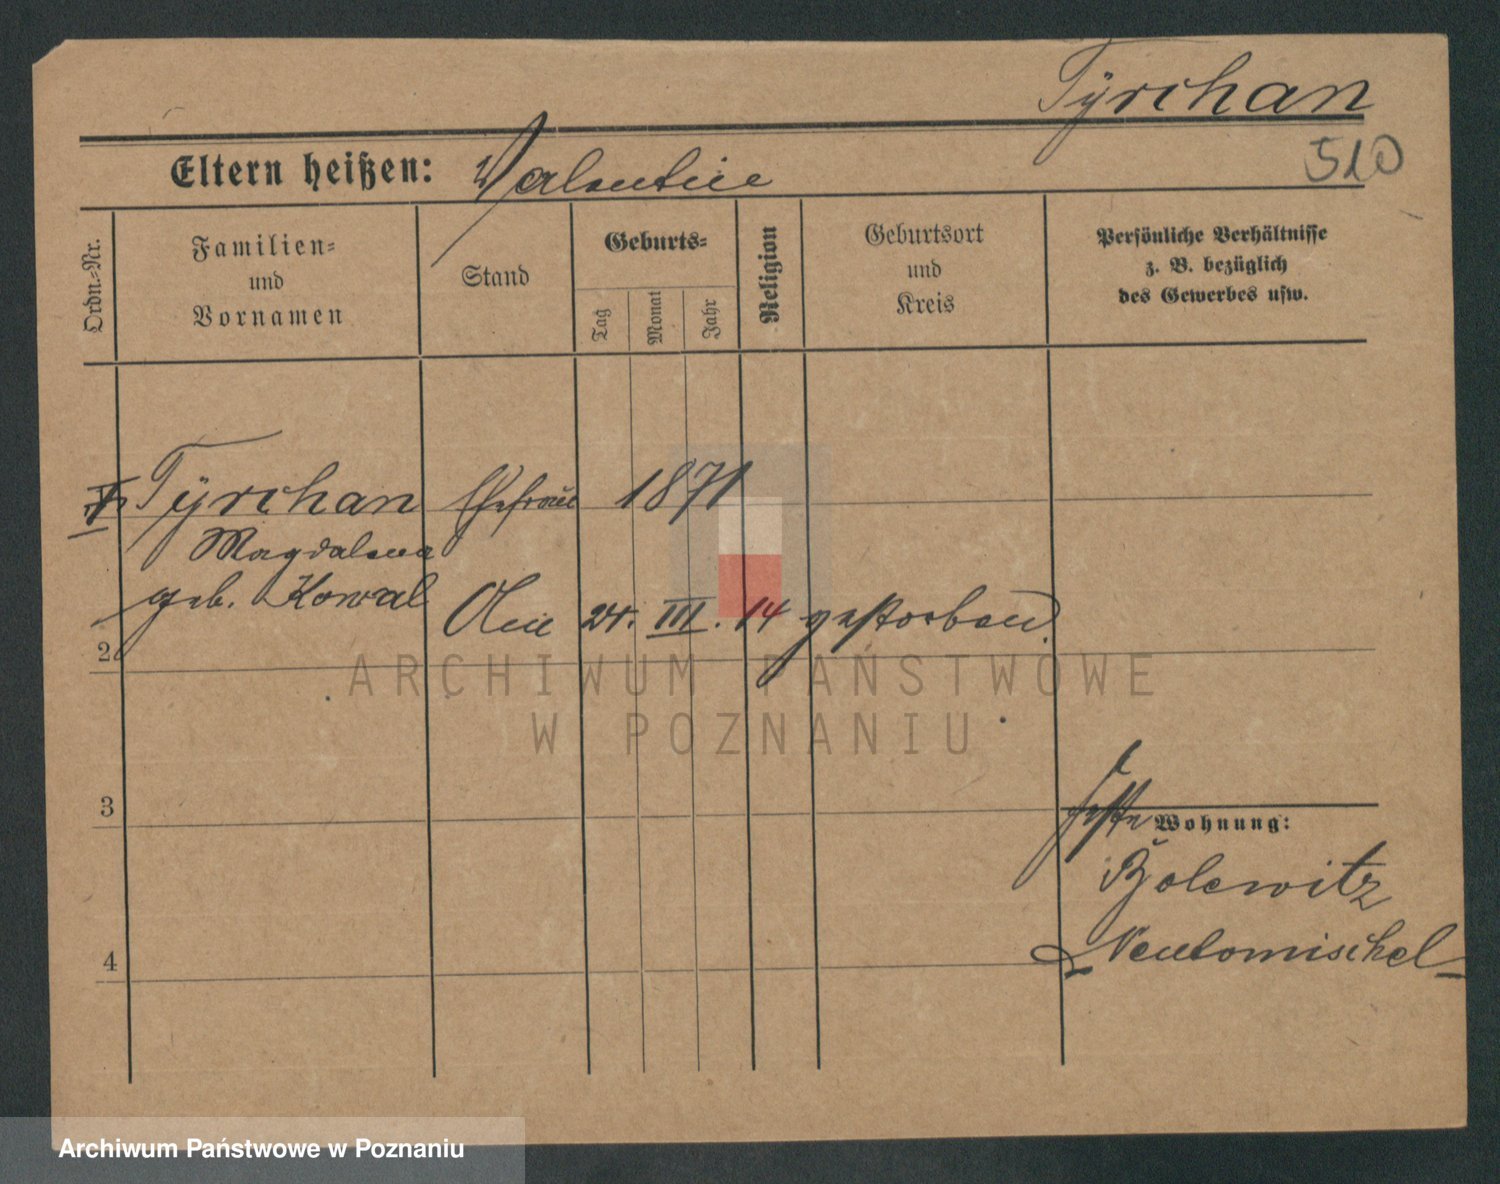 Tÿrchan
510
Eltern heißen: Valentin
Ordn.-Nr.
Familien-
und
Vornamen
Stand
Geburts-
Tag
Monat
Jahr
Religion
Geburtsort
und
Kreis
Persönliche Verhältnisse
z. B. bezüglich
des Gewerbes usw.
Tÿrchan Ehefrau 1871
Magdalena
geb. Kowal
Am 24. III. 14 gestorben.
2
3
4
Feste Wohnung:
Bolewitz
Neutomischel
ARCHIWUM PAŃSTWOWE
W POZNANIU
Archiwum Państwowe w Poznaniu